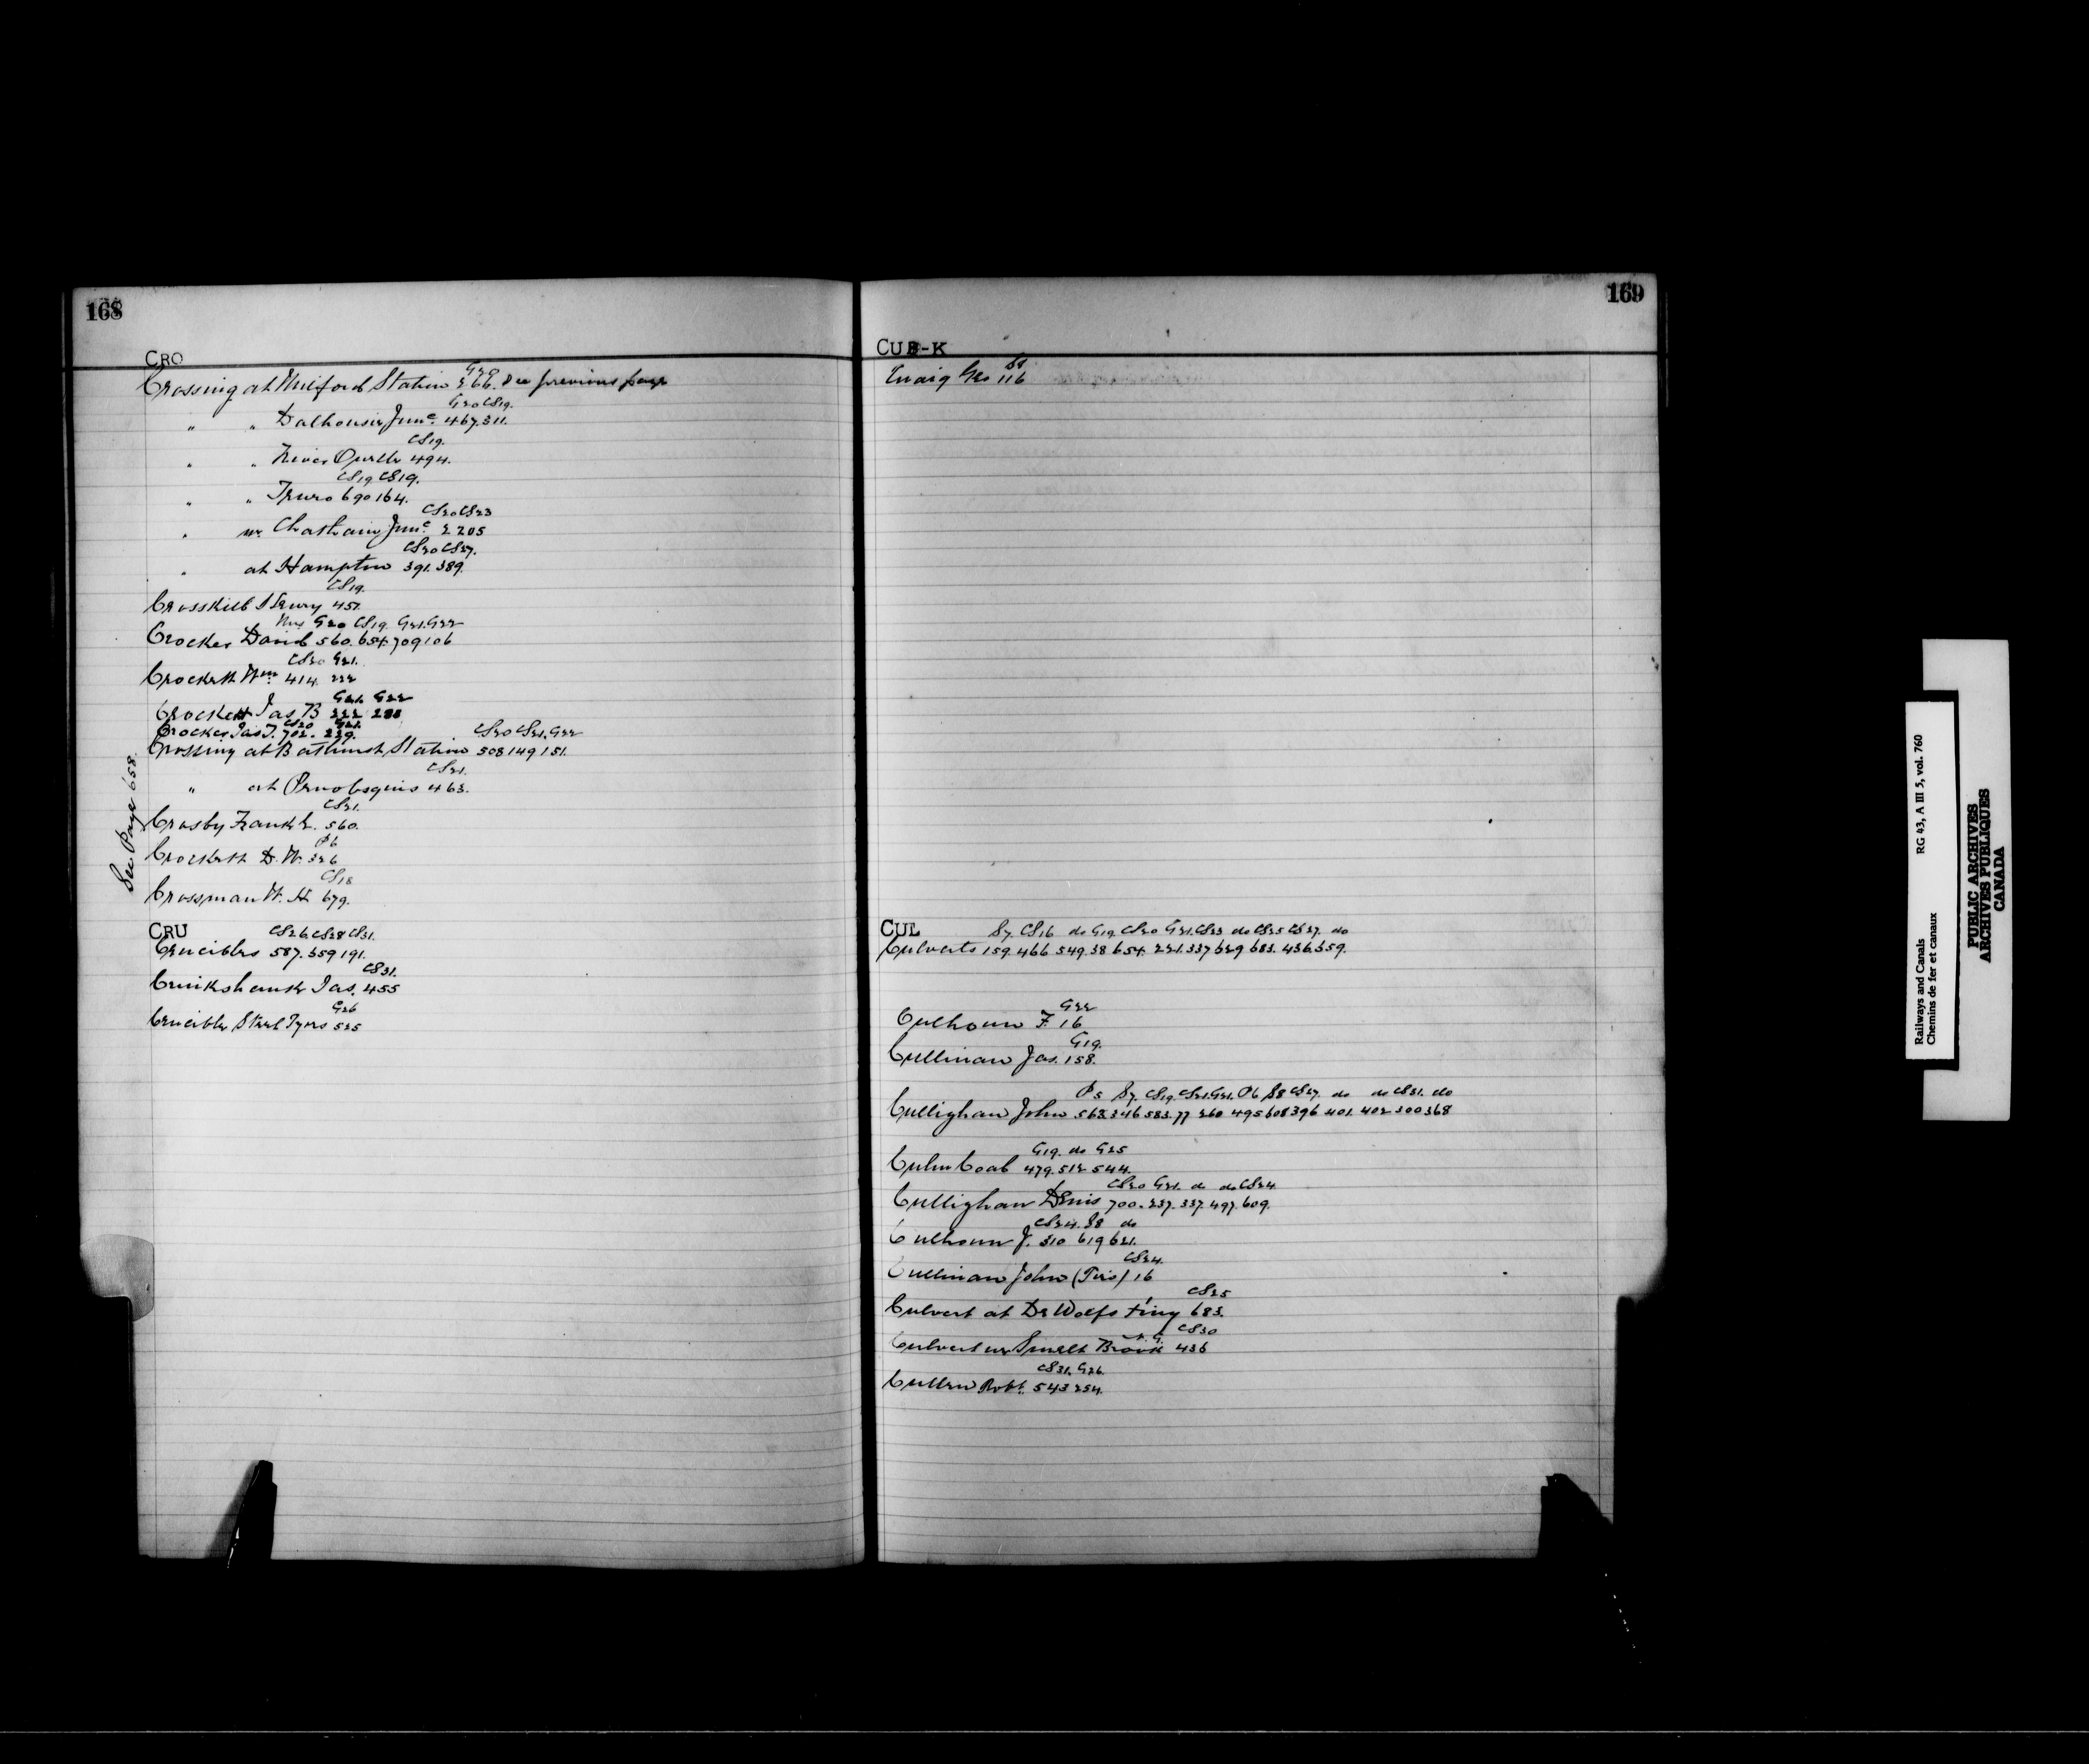 168
CRO
G20
Crossing at Milford Station 266. See previous page
G20 CS19.
" " Dalhousie Junc. 467. 511.
CS19.
" " River Ouelle 494.
CS19 CS19.
" " Truro 690 164.
CS20 CS23
" nr. Chatham Junc. 2 205
CS20 CS27.
" at Hampton 391. 389.
CS19.
Crosskill Henry 451.
G20 CS19. G21. G22
Crocker David 560. 654. 709 106
CS20 G21.
Crockett Wm. 414. 222
G21. G22
Crockett Jas B 222 288
CS20 G21.
Crocker Jas T. 702. 239.
CS20 CS21. G22
Crossing at Bathurst Station 508 149 151.
CS21.
" at Penobsquis 463.
CS21.
Crosby Frank L. 560.
P6
Crockett D. W. 326
CS18
Crossman W. H. 679.
See Page 658.
CRU
CS26. CS28 CS31.
Crucibles 587. 359 191.
CS31.
Cruikshank Jas. 455
G26
Crucible Steel Tyres 525
169
CUB-K
Craig Geo 116
CUL
S7. CS16 do G19 CS20 G21. CS23 do CS25 CS27. do
Culverts 159. 466 549. 38. 654. 221. 337 629 683. 436. 359.
G22
Culhoun F. 16
G19.
Cullinan Jas. 158.
P5 S7. CS19. CS21. G21. P6 S8 CS27. do do CS31. do
Cullighan John 563. 346 583. 77 260 495 608 396 401. 402 300 368
G19. do G25
Culm Coal 479. 512 544.
CS20 G21. do do CS24
Cullighan Denis 700. 237. 337. 497. 609.
CS24. S8 do
Culhoun J. 310 619 621.
CS24.
Cullinan John (Tires) 16
CS25
Culvert at DeWolfs 683.
CS30
Culvert nr Smelt Brook 436
CS31. G26.
Cullen Robt. 543 254.
Railways and Canals RG 43, A III 5, vol. 760
Chemins de fer et canaux
PUBLIC ARCHIVES
ARCHIVES PUBLIQUES
CANADA